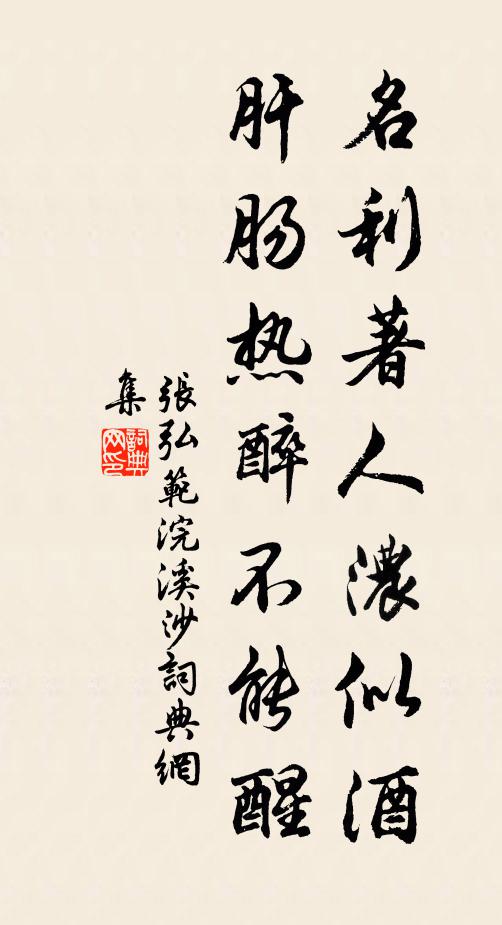 名利著人濃似酒
肝肠热醉不能醒
張弘範浣溪沙詞典網
集
詞典
网印